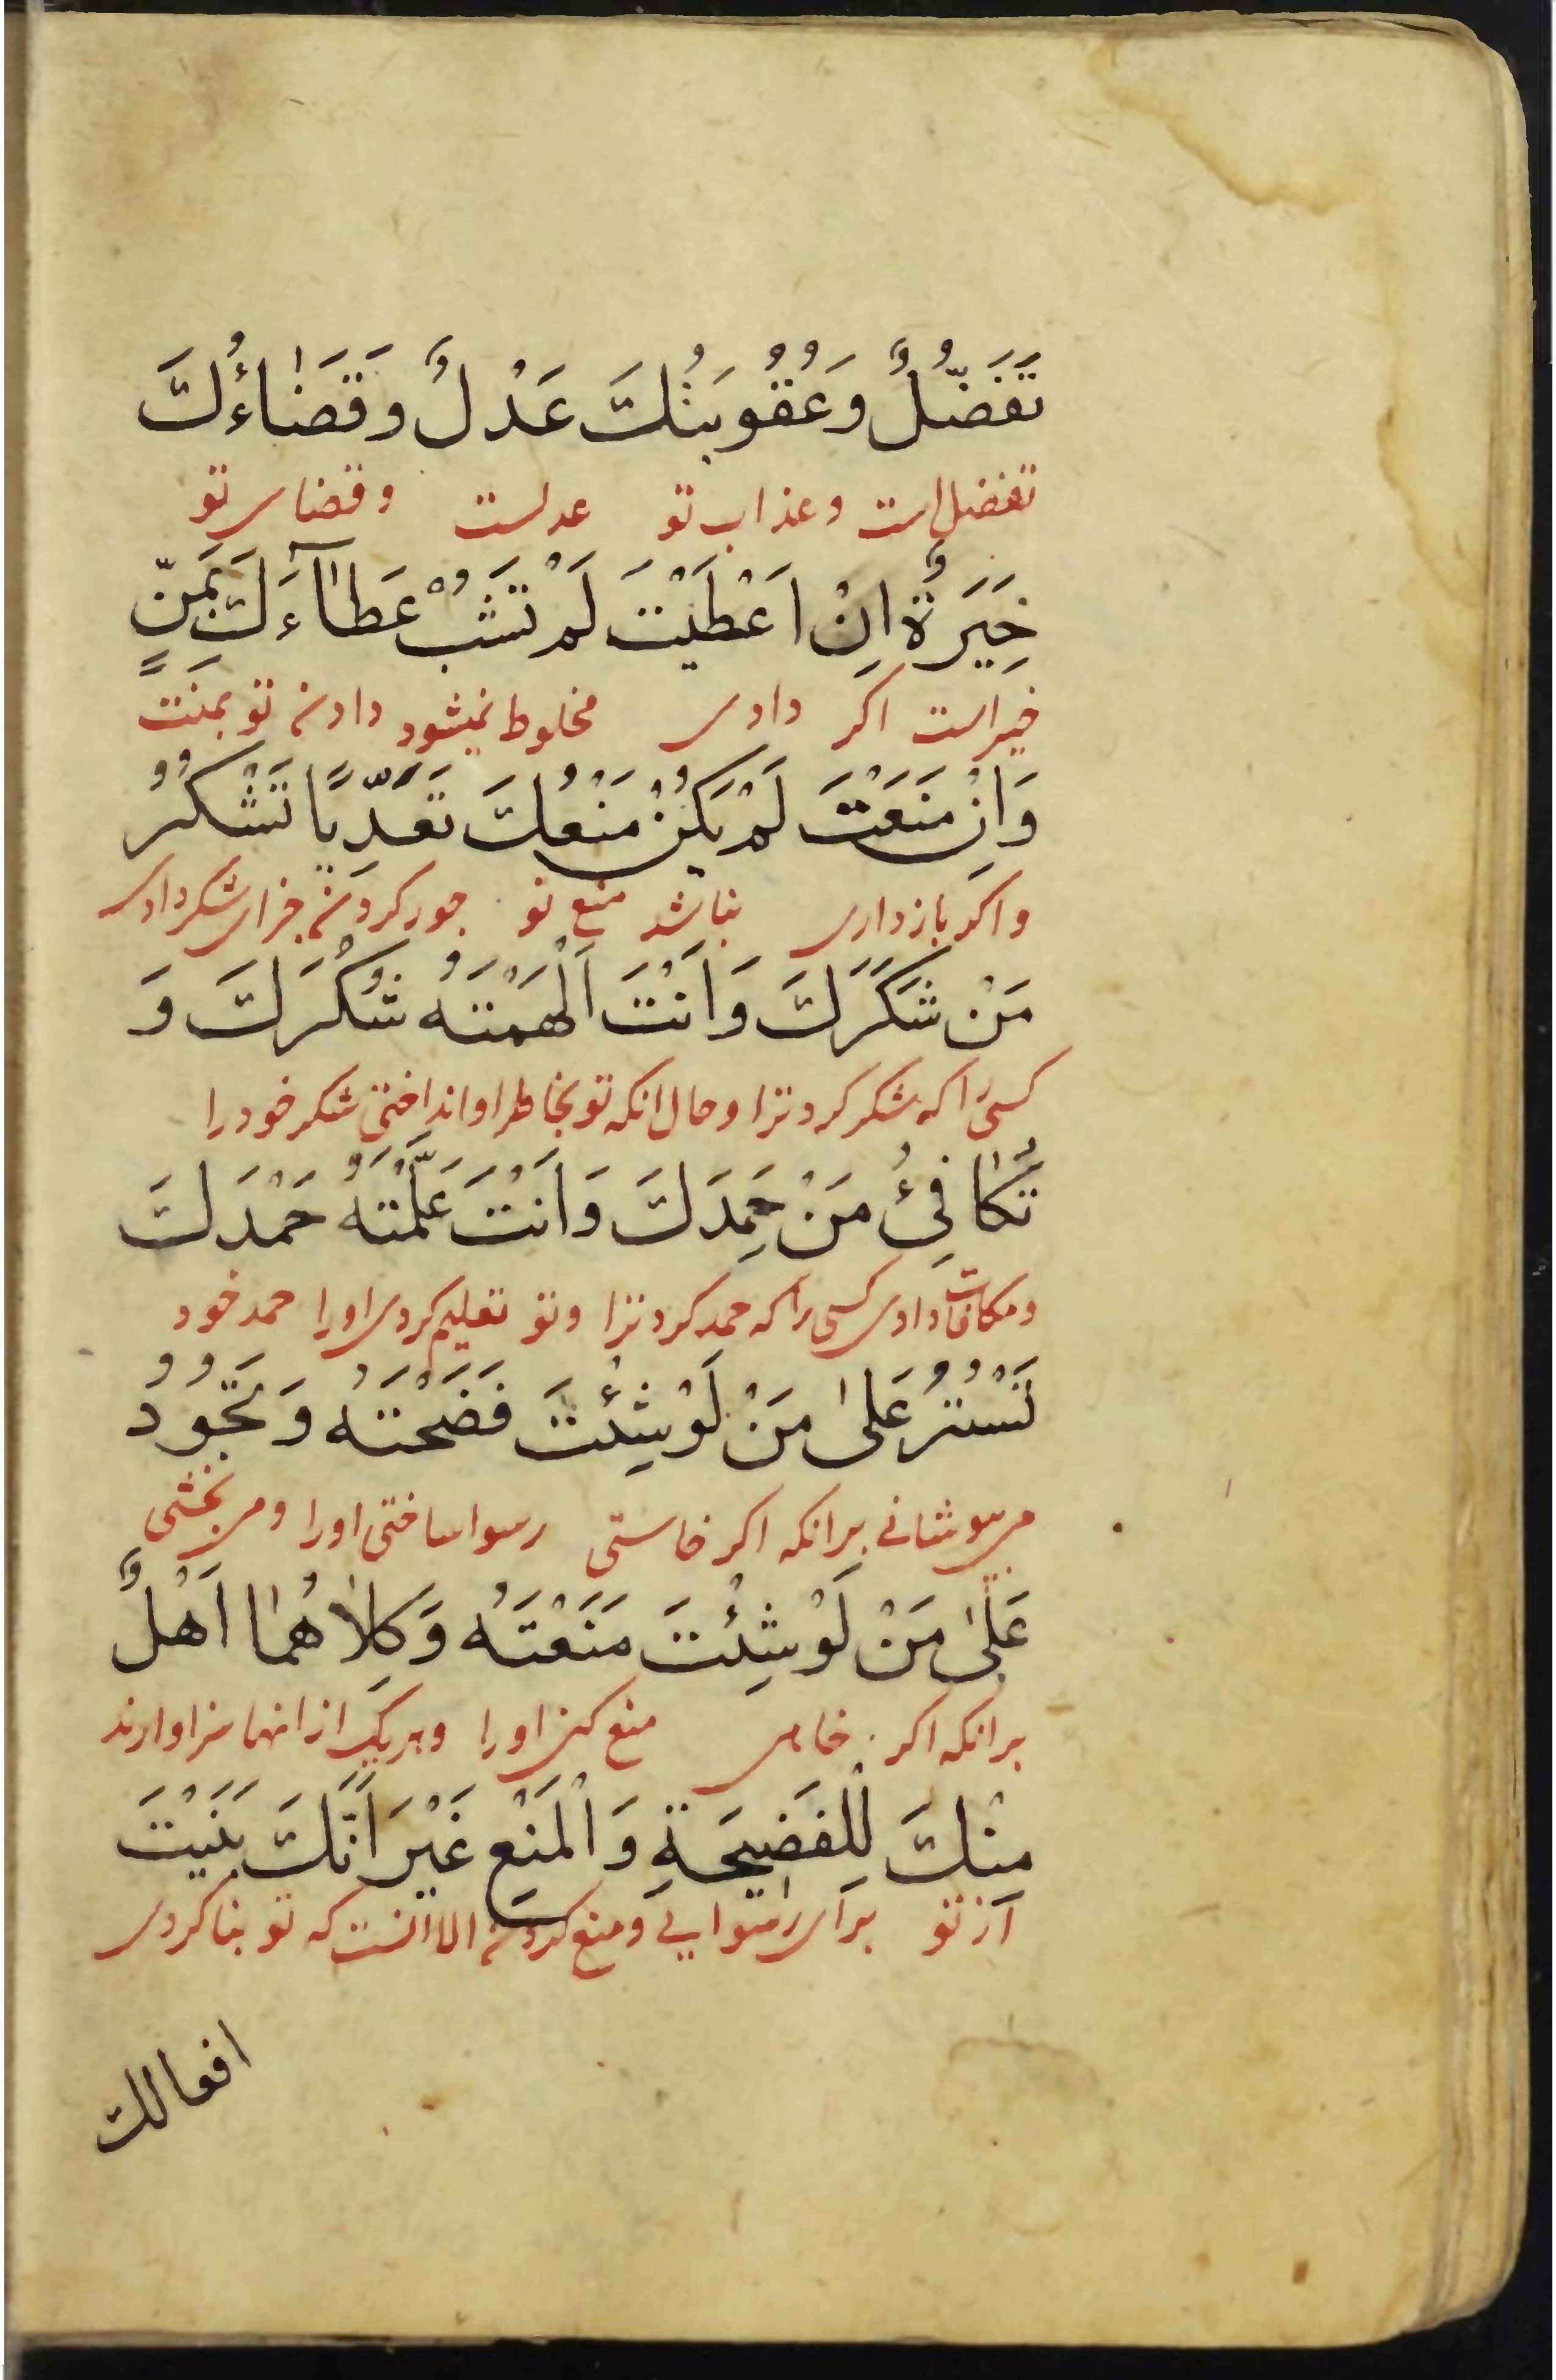 تَفَضُّلٌ وَعُقُوبَتُكَ عَدْلٌ وَقَضَاءُكَ
تفضل است وعذاب تو عدلست وقضای تو
خِيَرَةٌ اِنْ اَعْطَيْتَ لَمْ تَشُبْ عَطَآءَكَ بِمَنٍّ
خیراست اکر دادی مخلوط نمیشود دادن تو بمنت
وَاِنْ مَنَعْتَ لَمْ يَكُنْ مَنْعُكَ تَعَدِّيًا تَشْكُرُ
واکر بازداری نباشد منع تو جور کردن جزای شکر دادی
مَنْ شَكَرَكَ وَاَنْتَ اَلْهَمْتَهُ شُكْرَكَ وَ
کسی را که شکر کرد ترا وحال انکه تو بخاطر او انداختی شکر خود را
تُكَافِئُ مَنْ حَمِدَكَ وَاَنْتَ عَلَّمْتَهُ حَمْدَكَ
ومکافات دادی کسی را که حمد کرد ترا وتو تعلیم کردی اورا حمد خود
تَسْتُرُ عَلىٰ مَنْ لَوْ شِئْتَ فَضَحْتَهُ وَتَجُودُ
می پوشانی برانکه اکر خاستی رسوا ساختی اورا ومی بخشی
عَلىٰ مَنْ لَوْ شِئْتَ مَنَعْتَهُ وَكِلَاهُمَا اَهْلٌ
برانکه اکر خاهی منع کنی اورا وهریک از انها سزاوارند
مِنْكَ لِلْفَضِيحَةِ وَالْمَنْعِ غَيْرَ اَنَّكَ بَنَيْتَ
از تو برای رسوایی ومنع کردن الا انست که تو بنا کردی
افعالك